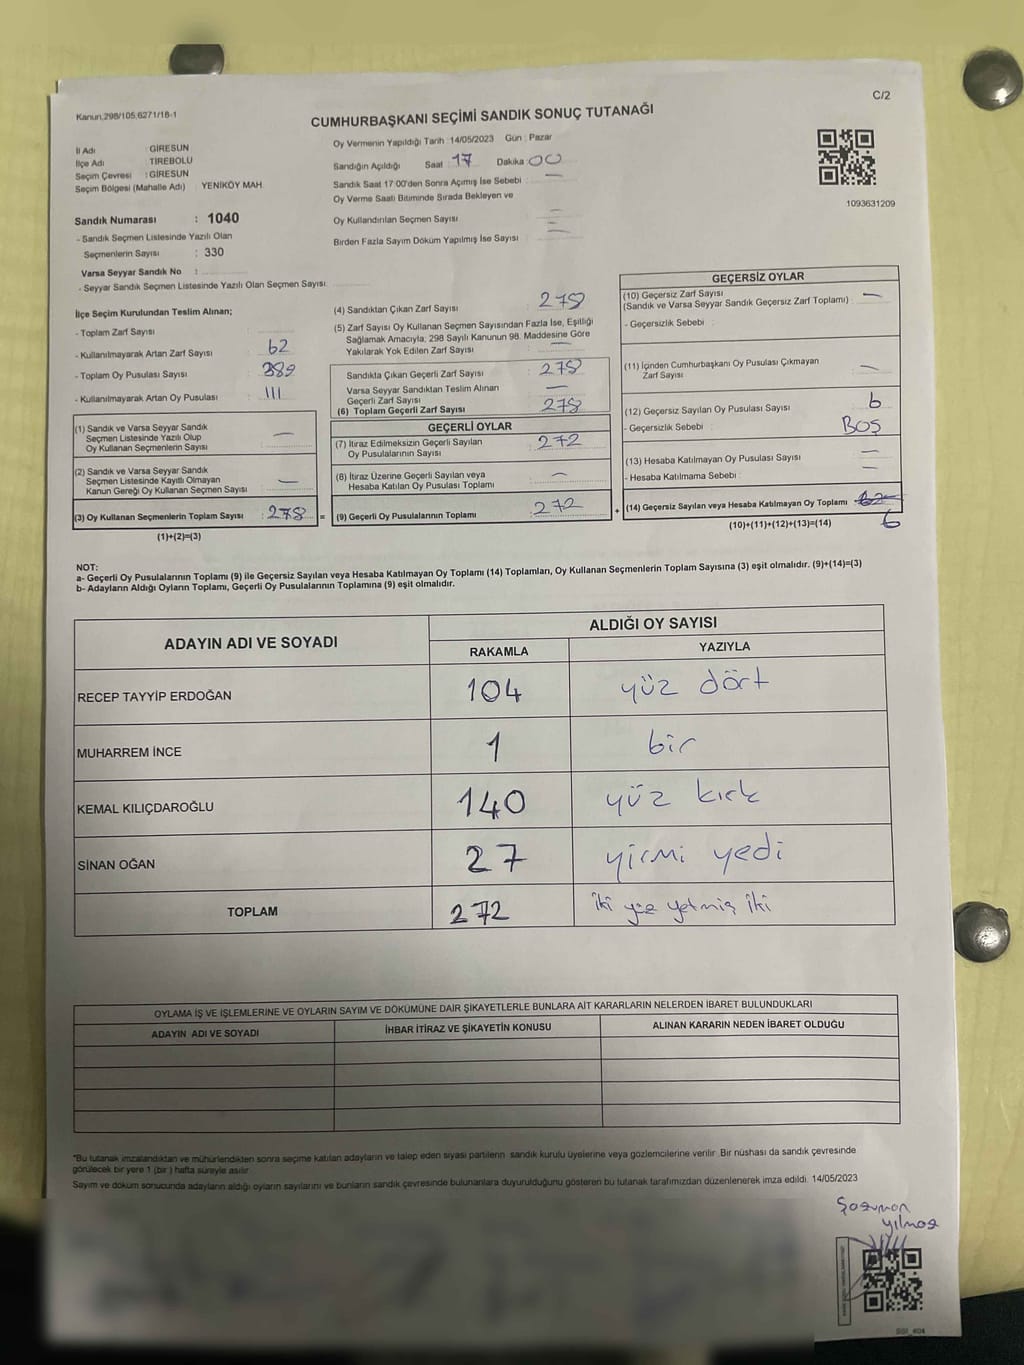 Kanun,298/105,6271/18-1
C/2
CUMHURBAŞKANI SEÇİMİ SANDIK SONUÇ TUTANAĞI
1093631209
İl Adı : GİRESUN
İlçe Adı : TİREBOLU
Seçim Çevresi : GİRESUN
Seçim Bölgesi (Mahalle Adı) : YENİKÖY MAH.
Oy Vermenin Yapıldığı Tarih : 14/05/2023 Gün : Pazar
Sandığın Açıldığı Saat : 17 Dakika : 00
Sandık Saat 17:00'den Sonra Açımış İse Sebebi : —
Oy Verme Saati Bitiminde Sırada Bekleyen ve
Oy Kullandırılan Seçmen Sayısı : —
Birden Fazla Sayım Döküm Yapılmış İse Sayısı : —
Sandık Numarası : 1040
- Sandık Seçmen Listesinde Yazılı Olan
Seçmenlerin Sayısı : 330
Varsa Seyyar Sandık No :
- Seyyar Sandık Seçmen Listesinde Yazılı Olan Seçmen Sayısı:
İlçe Seçim Kurulundan Teslim Alınan;
- Toplam Zarf Sayısı :
- Kullanılmayarak Artan Zarf Sayısı : 62
- Toplam Oy Pusulası Sayısı : 389
- Kullanılmayarak Artan Oy Pusulası : 111
(1) Sandık ve Varsa Seyyar Sandık
Seçmen Listesinde Yazılı Olup
Oy Kullanan Seçmenlerin Sayısı : —
(2) Sandık ve Varsa Seyyar Sandık
Seçmen Listesinde Kayıtlı Olmayan
Kanun Gereği Oy Kullanan Seçmen Sayısı : —
(3) Oy Kullanan Seçmenlerin Toplam Sayısı : 278 =
(1)+(2)=(3)
(4) Sandıktan Çıkan Zarf Sayısı : 278
(5) Zarf Sayısı Oy Kullanan Seçmen Sayısından Fazla İse, Eşitliği
Sağlamak Amacıyla; 298 Sayılı Kanunun 98. Maddesine Göre
Yakılarak Yok Edilen Zarf Sayısı : —
Sandıkta Çıkan Geçerli Zarf Sayısı : 278
Varsa Seyyar Sandıktan Teslim Alınan
Geçerli Zarf Sayısı : —
(6) Toplam Geçerli Zarf Sayısı : 278
GEÇERLİ OYLAR
(7) İtiraz Edilmeksizin Geçerli Sayılan
Oy Pusulalarının Sayısı : 272
(8) İtiraz Üzerine Geçerli Sayılan veya
Hesaba Katılan Oy Pusulası Toplamı : —
(9) Geçerli Oy Pusulalarının Toplamı : 272 +
GEÇERSİZ OYLAR
(10) Geçersiz Zarf Sayısı
(Sandık ve Varsa Seyyar Sandık Geçersiz Zarf Toplamı) : —
- Geçersizlik Sebebi :
(11) İçinden Cumhurbaşkanı Oy Pusulası Çıkmayan
Zarf Sayısı : —
(12) Geçersiz Sayılan Oy Pusulası Sayısı : 6
- Geçersizlik Sebebi : BOŞ
(13) Hesaba Katılmayan Oy Pusulası Sayısı : —
- Hesaba Katılmama Sebebi : —
(14) Geçersiz Sayılan veya Hesaba Katılmayan Oy Toplamı 6
(10)+(11)+(12)+(13)=(14)
NOT:
a- Geçerli Oy Pusulalarının Toplamı (9) ile Geçersiz Sayılan veya Hesaba Katılmayan Oy Toplamı (14) Toplamları, Oy Kullanan Seçmenlerin Toplam Sayısına (3) eşit olmalıdır. (9)+(14)=(3)
b- Adayların Aldığı Oyların Toplamı, Geçerli Oy Pusulalarının Toplamına (9) eşit olmalıdır.
ADAYIN ADI VE SOYADI
ALDIĞI OY SAYISI
RAKAMLA YAZIYLA
RECEP TAYYİP ERDOĞAN 104 yüz dört
MUHARREM İNCE 1 bir
KEMAL KILIÇDAROĞLU 140 yüz kırk
SİNAN OĞAN 27 yirmi yedi
TOPLAM 272 iki yüz yetmiş iki
OYLAMA İŞ VE İŞLEMLERİNE VE OYLARIN SAYIM VE DÖKÜMÜNE DAİR ŞİKAYETLERLE BUNLARA AİT KARARLARIN NELERDEN İBARET BULUNDUKLARI
ADAYIN ADI VE SOYADI İHBAR İTİRAZ VE ŞİKAYETİN KONUSU ALINAN KARARIN NEDEN İBARET OLDUĞU
*Bu tutanak imzalandıktan ve mühürlendikten sonra seçime katılan adayların ve talep eden siyasi partilerin sandık kurulu üyelerine veya gözlemcilerine verilir. Bir nüshası da sandık çevresinde
görülecek bir yere 1 (bir ) hafta süreyle asılır.
Sayım ve döküm sonucunda adayların aldığı oyların sayılarını ve bunların sandık çevresinde bulunanlara duyurulduğunu gösteren bu tutanak tarafımızdan düzenlenerek imza edildi. 14/05/2023
yılmaz